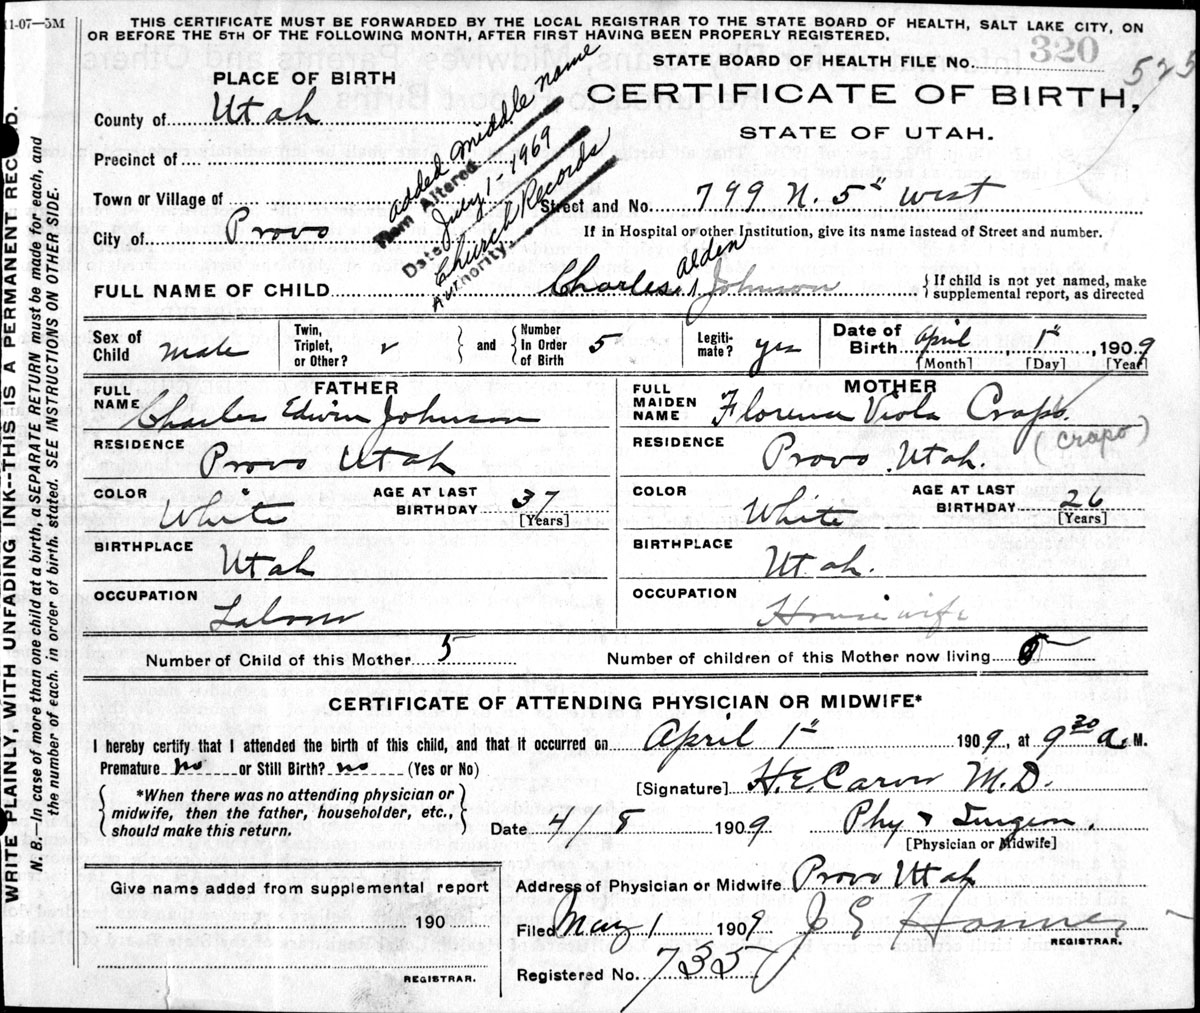 11-07—5M
THIS CERTIFICATE MUST BE FORWARDED BY THE LOCAL REGISTRAR TO THE STATE BOARD OF HEALTH, SALT LAKE CITY, ON
OR BEFORE THE 5TH OF THE FOLLOWING MONTH, AFTER FIRST HAVING BEEN PROPERLY REGISTERED.
STATE BOARD OF HEALTH FILE NO. 320
525
PLACE OF BIRTH
CERTIFICATE OF BIRTH,
STATE OF UTAH.
County of Utah
Precinct of
Town or Village of
City of Provo
added middle name
Item Altered
Date July 1-1969
Church Records
Authority
Street and No. 799 N. 5th West
If in Hospital or other Institution, give its name instead of Street and number.
alden
FULL NAME OF CHILD Charles Johnson
If child is not yet named, make
supplemental report, as directed
Sex of Child male
Twin, Triplet, or Other?
and
Number In Order of Birth 5
Legitimate? yes
Date of Birth April 1st, 1909
[Month] [Day] [Year]
FATHER
FULL NAME Charles Edwin Johnson
RESIDENCE Provo Utah
COLOR White
AGE AT LAST BIRTHDAY 37
[Years]
BIRTHPLACE Utah
OCCUPATION Labor
MOTHER
FULL MAIDEN NAME Florena Viola Crapo
(Crapo)
RESIDENCE Provo Utah.
COLOR White
AGE AT LAST BIRTHDAY 26
[Years]
BIRTHPLACE Utah.
OCCUPATION Housewife
Number of Child of this Mother 5
Number of children of this Mother now living 5
CERTIFICATE OF ATTENDING PHYSICIAN OR MIDWIFE*
I hereby certify that I attended the birth of this child, and that it occurred on April 1st 1909, at 9 30 a. M.
Premature no or Still Birth? no (Yes or No)
[Signature] H. E. M.D.
*When there was no attending physician or
midwife, then the father, householder, etc.,
should make this return.
Date 4/8 1909 Phy & Surgeon.
[Physician or Midwife]
Give name added from supplemental report
190
REGISTRAR.
Address of Physician or Midwife Provo Utah
Filed May 1 1909 J E
REGISTRAR.
Registered No. 735
WRITE PLAINLY, WITH UNFADING INK--THIS IS A PERMANENT RECORD.
N. B.—In case of more than one child at a birth, a SEPARATE RETURN must be made for each, and
the number of each, in order of birth, stated. SEE INSTRUCTIONS ON OTHER SIDE.